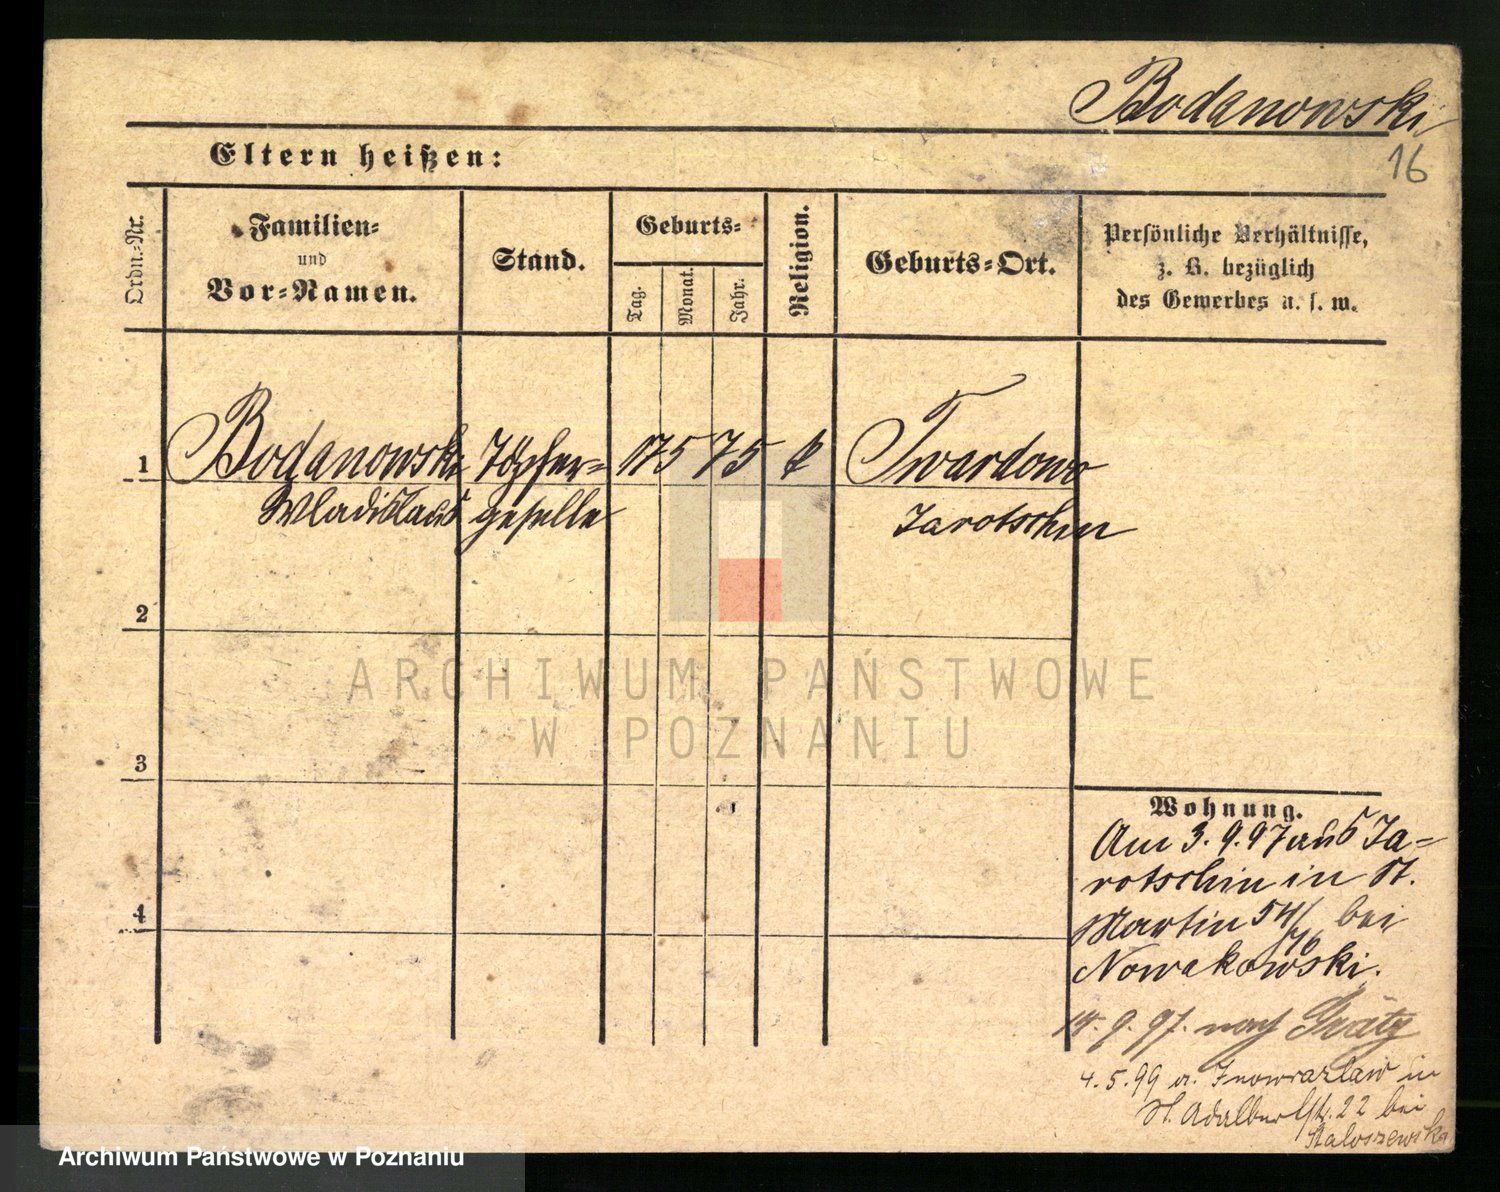 Bodanowski
16
Eltern heißen:
Ordn.-Nr.
Familien-
und
Vor-Namen.
Stand.
Geburts-
Tag.
Monat.
Jahr.
Religion.
Geburts-Ort.
Persönliche Verhältnisse,
z. B. bezüglich
des Gewerbes u. s. w.
1
Bodanowski Töpfer- 17 5 75 Twardowo
Wladislaus geselle Jarotschin
2
3
4
ARCHIWUM PAŃSTWOWE
W POZNANIU
Wohnung.
Am 3.9.97 aus Ja-
rotschin in St.
Martin 54/ bei
Nowakowski.
14.9.97. nach Grätz
4.5.99 a. Inowrazlaw in
St. Adalbertstr. 22 bei
Staloszewska
Archiwum Państwowe w Poznaniu